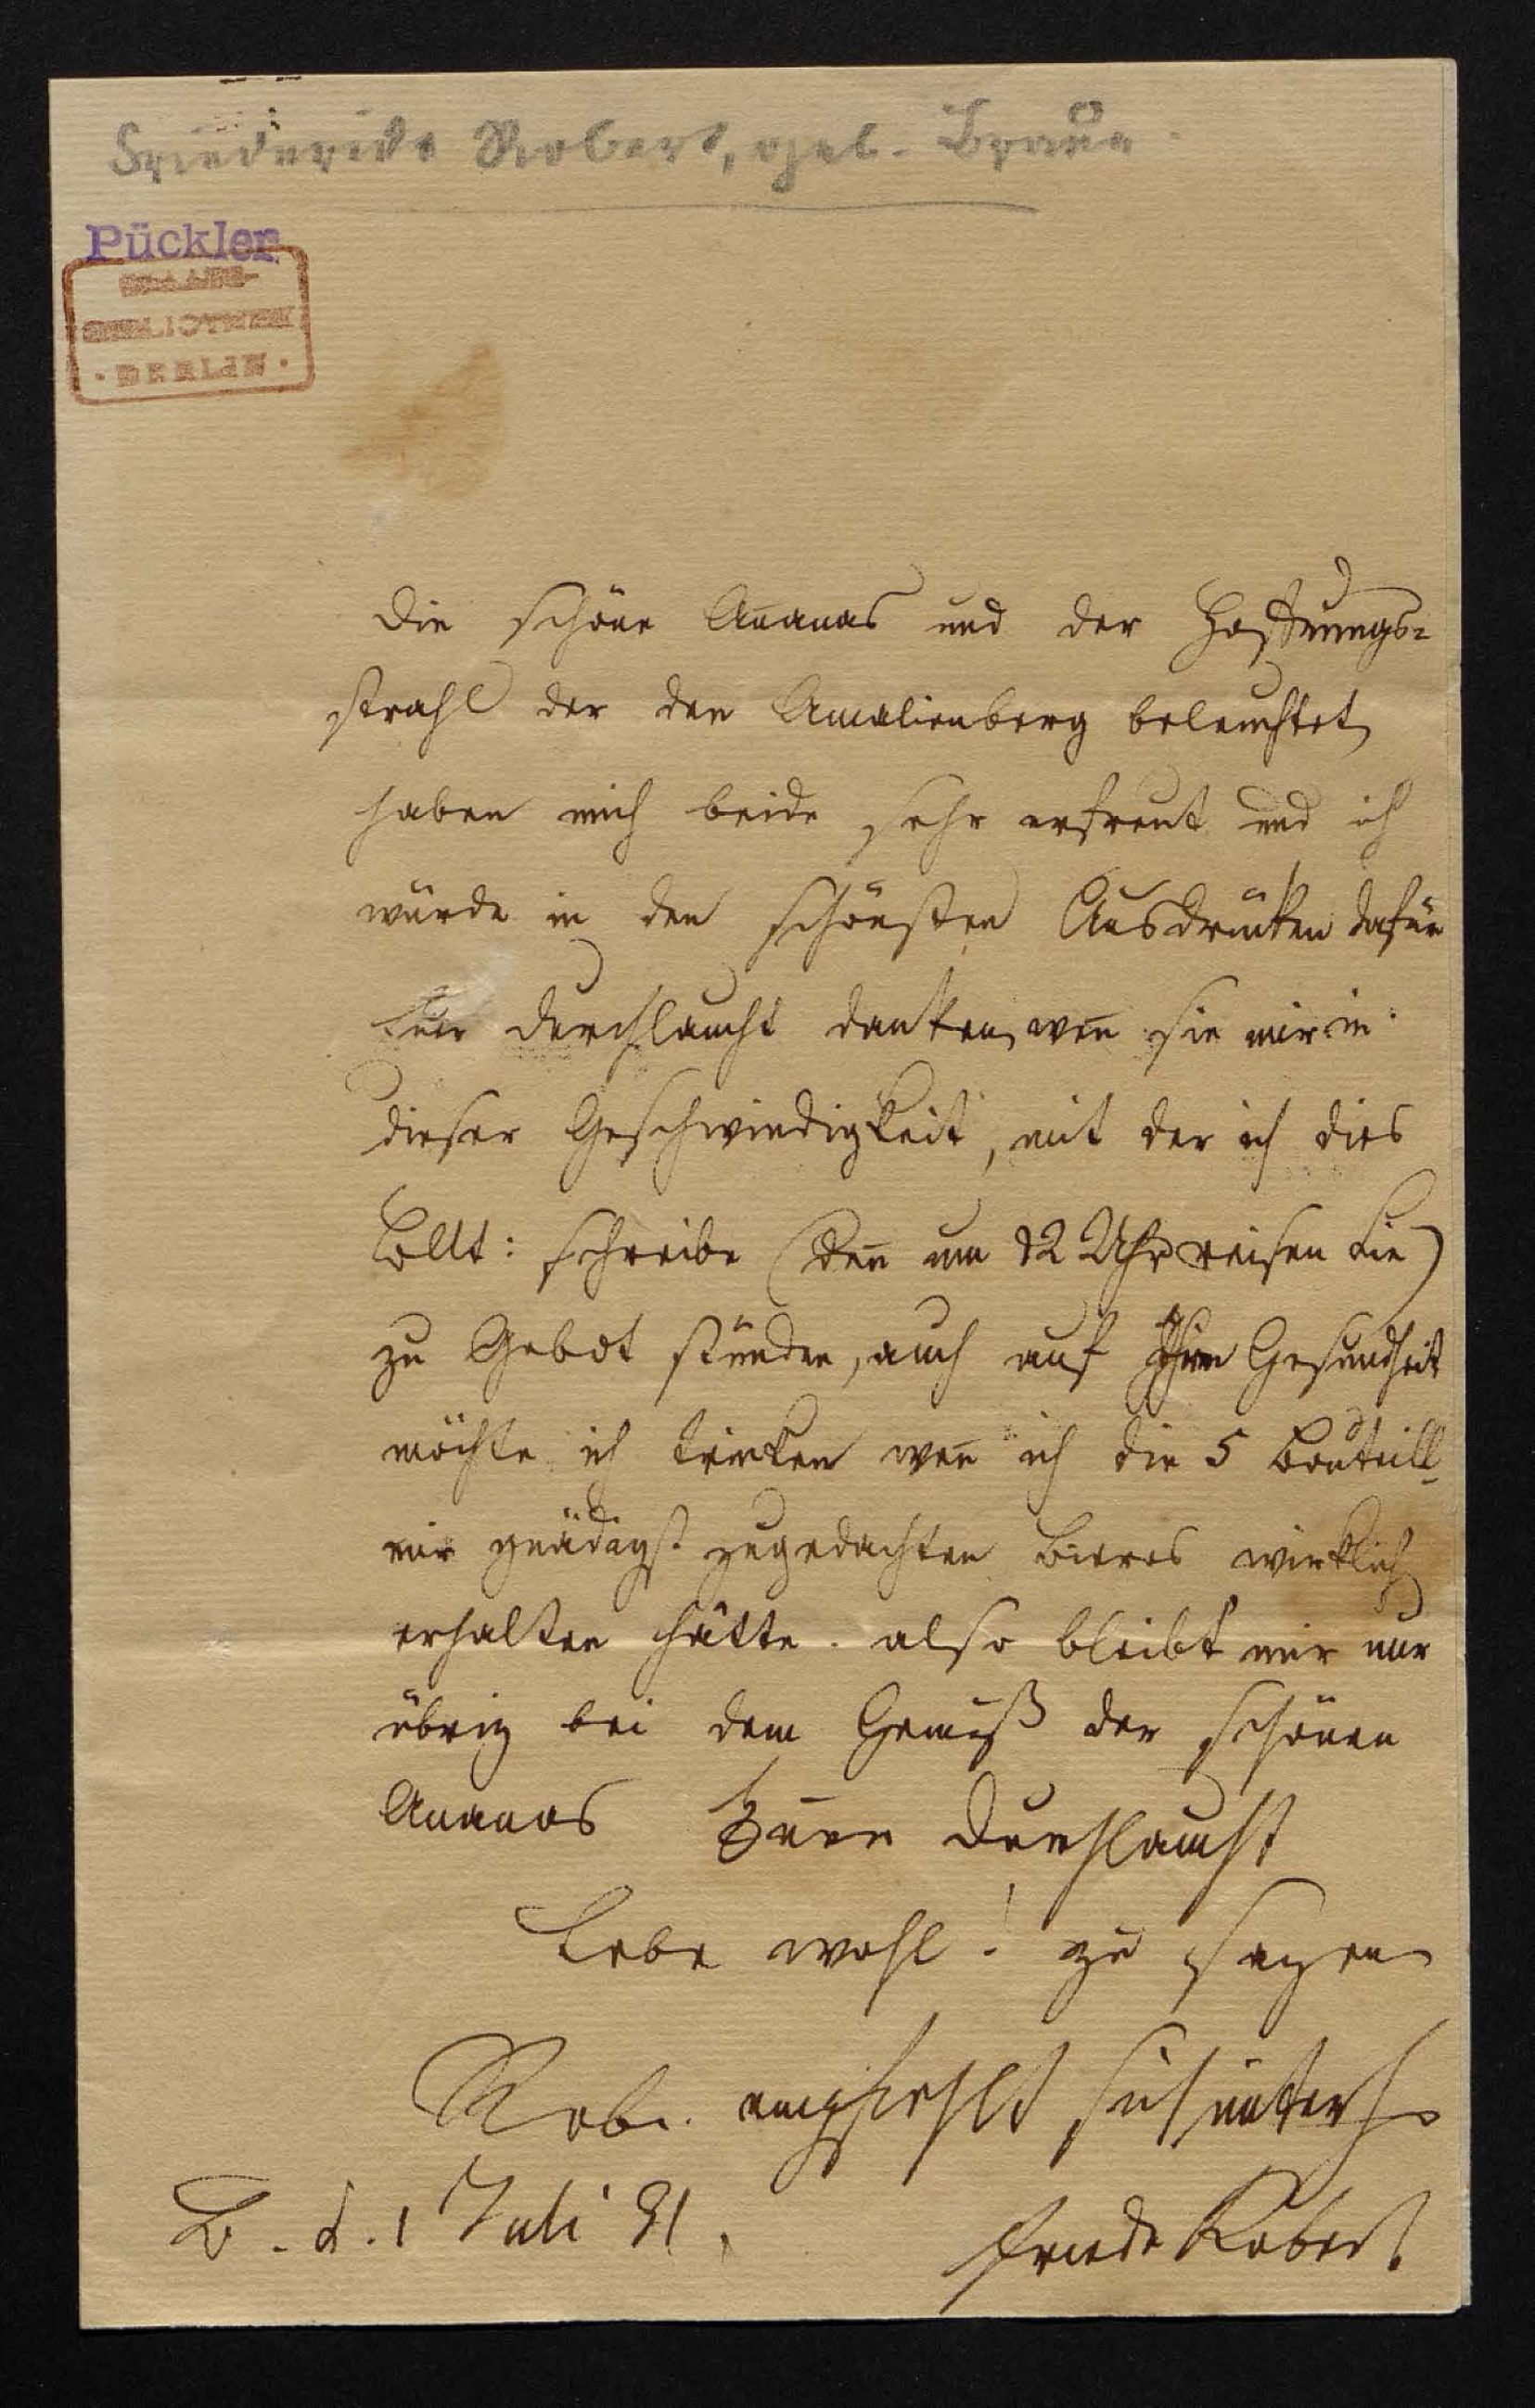 Friederike Robert, geb. Braun.
Pückler
STAATS-
BIBLIOTHEK
· BERLIN ·
Die schöne Ananas und der Hoffnungs=
strahl der den Amalienberg beleuchtet
haben mich beide sehr erfreut und ich
würde in den schönsten Ausdrücken dafür
Euer Durchlaucht danken, wen̄ sie mir in
dieser Geschwindigkeit, mit der ich dies
Bllt: schreibe (den̄ um 12 Uhr reisen Sie)
zu Gebot stünden, auch auf Ihre Gesundheit
möchte ich trinken wen̄ ich die 5 Bouteill
mir gnädigst zugedachten Bieres wirklich
erhalten hätte. also bleibt mir nur
übrig bei dem Genuß der schönen
Ananas Euer Durchlaucht
Lebe wohl! zu sagen
Rob. empfiehlt sich unterth
B. d. 1 Juli 31.
Friede Robert.